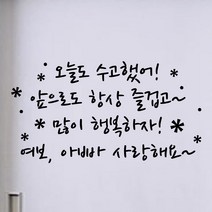 오늘도 수고했어!
앞으로도 항상 즐겁고~
많이 행복하자!
여보, 아빠 사랑해요~